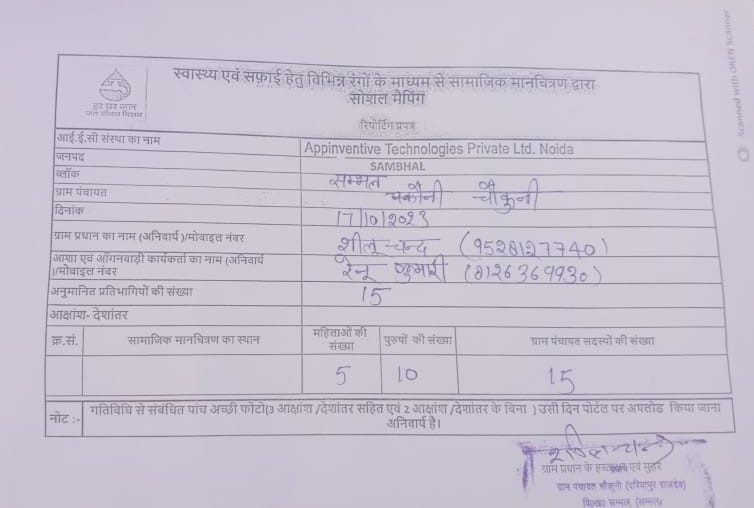 स्वास्थ्य एवं सफ़ाई हेतु विभिन्न रंगों के माध्यम से सामाजिक मानचित्रण द्वारा
सोशल मैपिंग
हर घर जल
जल जीवन मिशन
रिपोर्टिंग प्रपत्र
आई.ई.सी संस्था का नाम Appinventive Technologies Private Ltd. Noida
जनपद SAMBHAL
ब्लॉक सम्भल
ग्राम पंचायत चौकुनी
दिनांक 17/10/2023
ग्राम प्रधान का नाम (अनिवार्य )/मोबाइल नंबर शीलू चन्द (9528127740)
आशा एवं आँगनवाड़ी कार्यकर्ता का नाम (अनिवार्य
)/मोबाइल नंबर रेनू कुमारी (8126369930)
अनुमानित प्रतिभागियों की संख्या 15
आक्षांश- देशांतर
क्र.सं. सामाजिक मानचित्रण का स्थान महिलाओं की संख्या पुरुषों की संख्या ग्राम पंचायत सदस्यों की संख्या
5 10 15
नोट :- गतिविधि से संबंधित पांच अच्छी फोटो(3 आक्षांश /देशांतर सहित एवं 2 आक्षांश /देशांतर के बिना ) उसी दिन पोर्टल पर अपलोड किया जाना
अनिवार्य है।
ग्राम प्रधान के हस्ताक्षर एवं मुहर
ग्राम पंचायत चौकुनी (दरियापुर राजदेव)
वि०ख० सम्भल, (सम्भल)
Scanned with OKEN Scanner